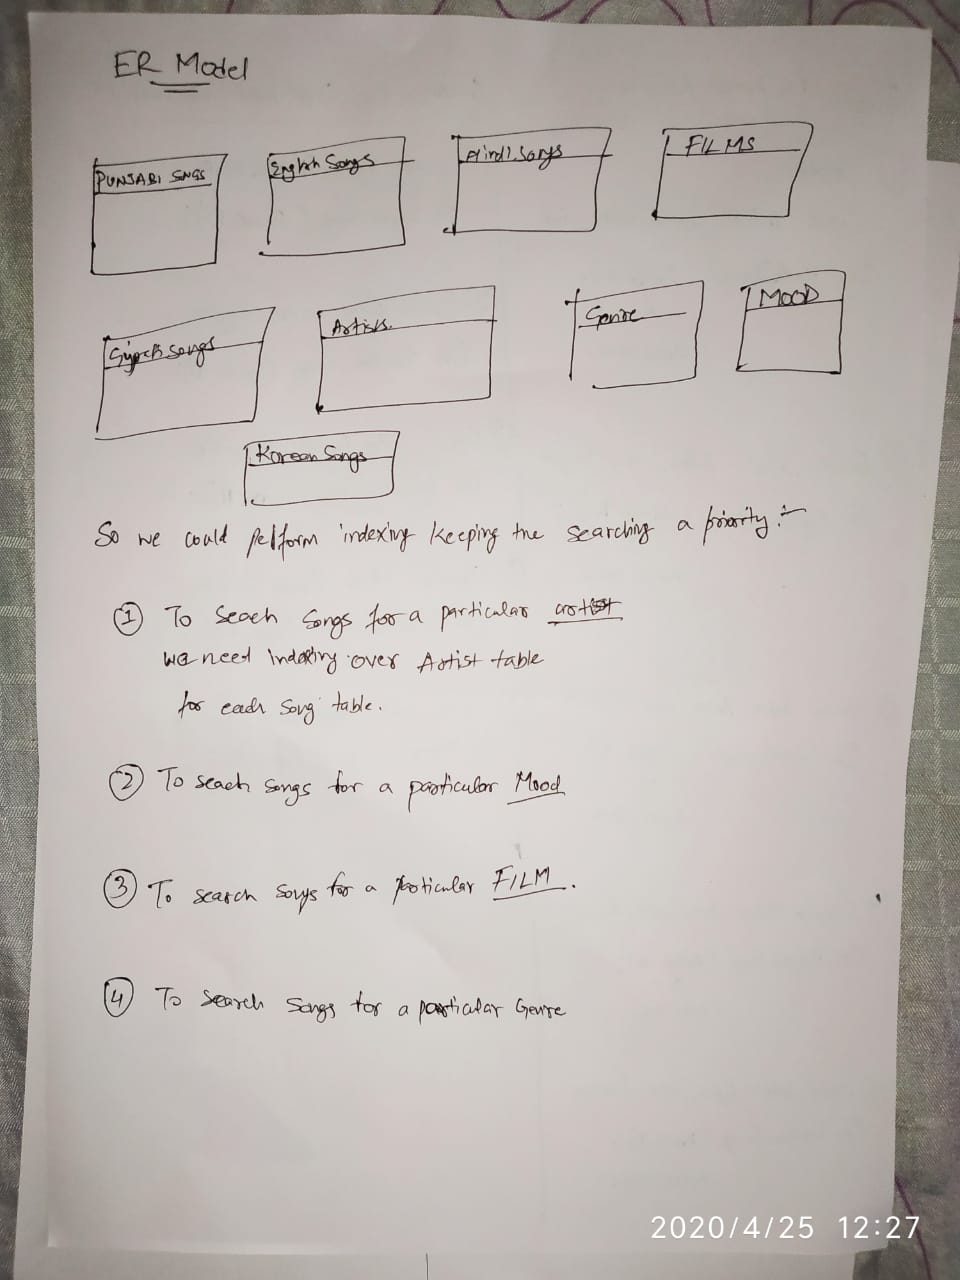 ER Model
PUNJABI SNGS
English Songs
Hindi Songs
FILMS
Songs
Artists
Genre
MOOD
Korean Songs
So we could perform indexing keeping the searching a priority :-
1 To seach songs for a particular artist
we need Indexing over Artist table
for each song table.
2 To seach songs for a particular Mood
3 To search songs for a particular FILM.
4 To search songs for a particular Genre
2020/4/25 12:27